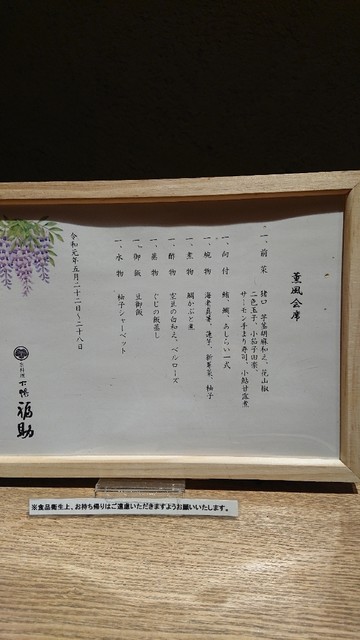 薫風会席
一、前菜 猪口 芋茎胡麻和え、花山椒
二色玉子、小茄子田楽、
サーモン手まり寿司、小鮎甘露煮
一、向付 鮪、鯛、あしらい一式
一、椀物 海老真薯、蓮芋、新蓴菜、柚子
一、煮物 鯛かぶと煮
一、酢物 空豆の白和え、ベルローズ
一、蒸物 ぐじの飯蒸し
一、御飯 豆御飯
一、水物 柚子シャーベット
令和元年五月二十二日～二十八日
京料理 下鴨 福助
※食品衛生上、お持ち帰りはご遠慮いただきますようお願いいたします。